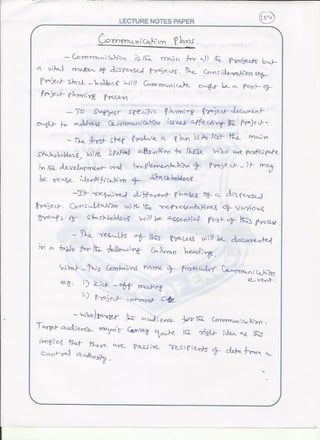 LECTURE NOTES PAPER
154
Communication Plans.
- Communication is the main for all the projects but
a vital maker of dispersed projects. The consideration of
Project Stack - holders will communicate ought be a part of
Project planning process.
- To suggest specific planning project document
ought to address communication issues affecting the Project.
- The first step produce a plan is to list the main
Stakeholders, with spatial attention to those who are participate
in the development and implementation of project - it may
be reuse identification of Stakeholders
- It required different phases of a dispersed
Project. Consultation with the representatives of various
groups of Stakeholders will be essential part of this process
- The results of this process will be documented
in a table for the following column headings.
What - This contains name of particular Communication
event.
e.g. i) kick - off meeting
ii) Project intranet site
- Who/target the audience for the communication.
Target audience mayn't convey quite the right idea as this
implies that there are passive recipients of data from a
central authority.